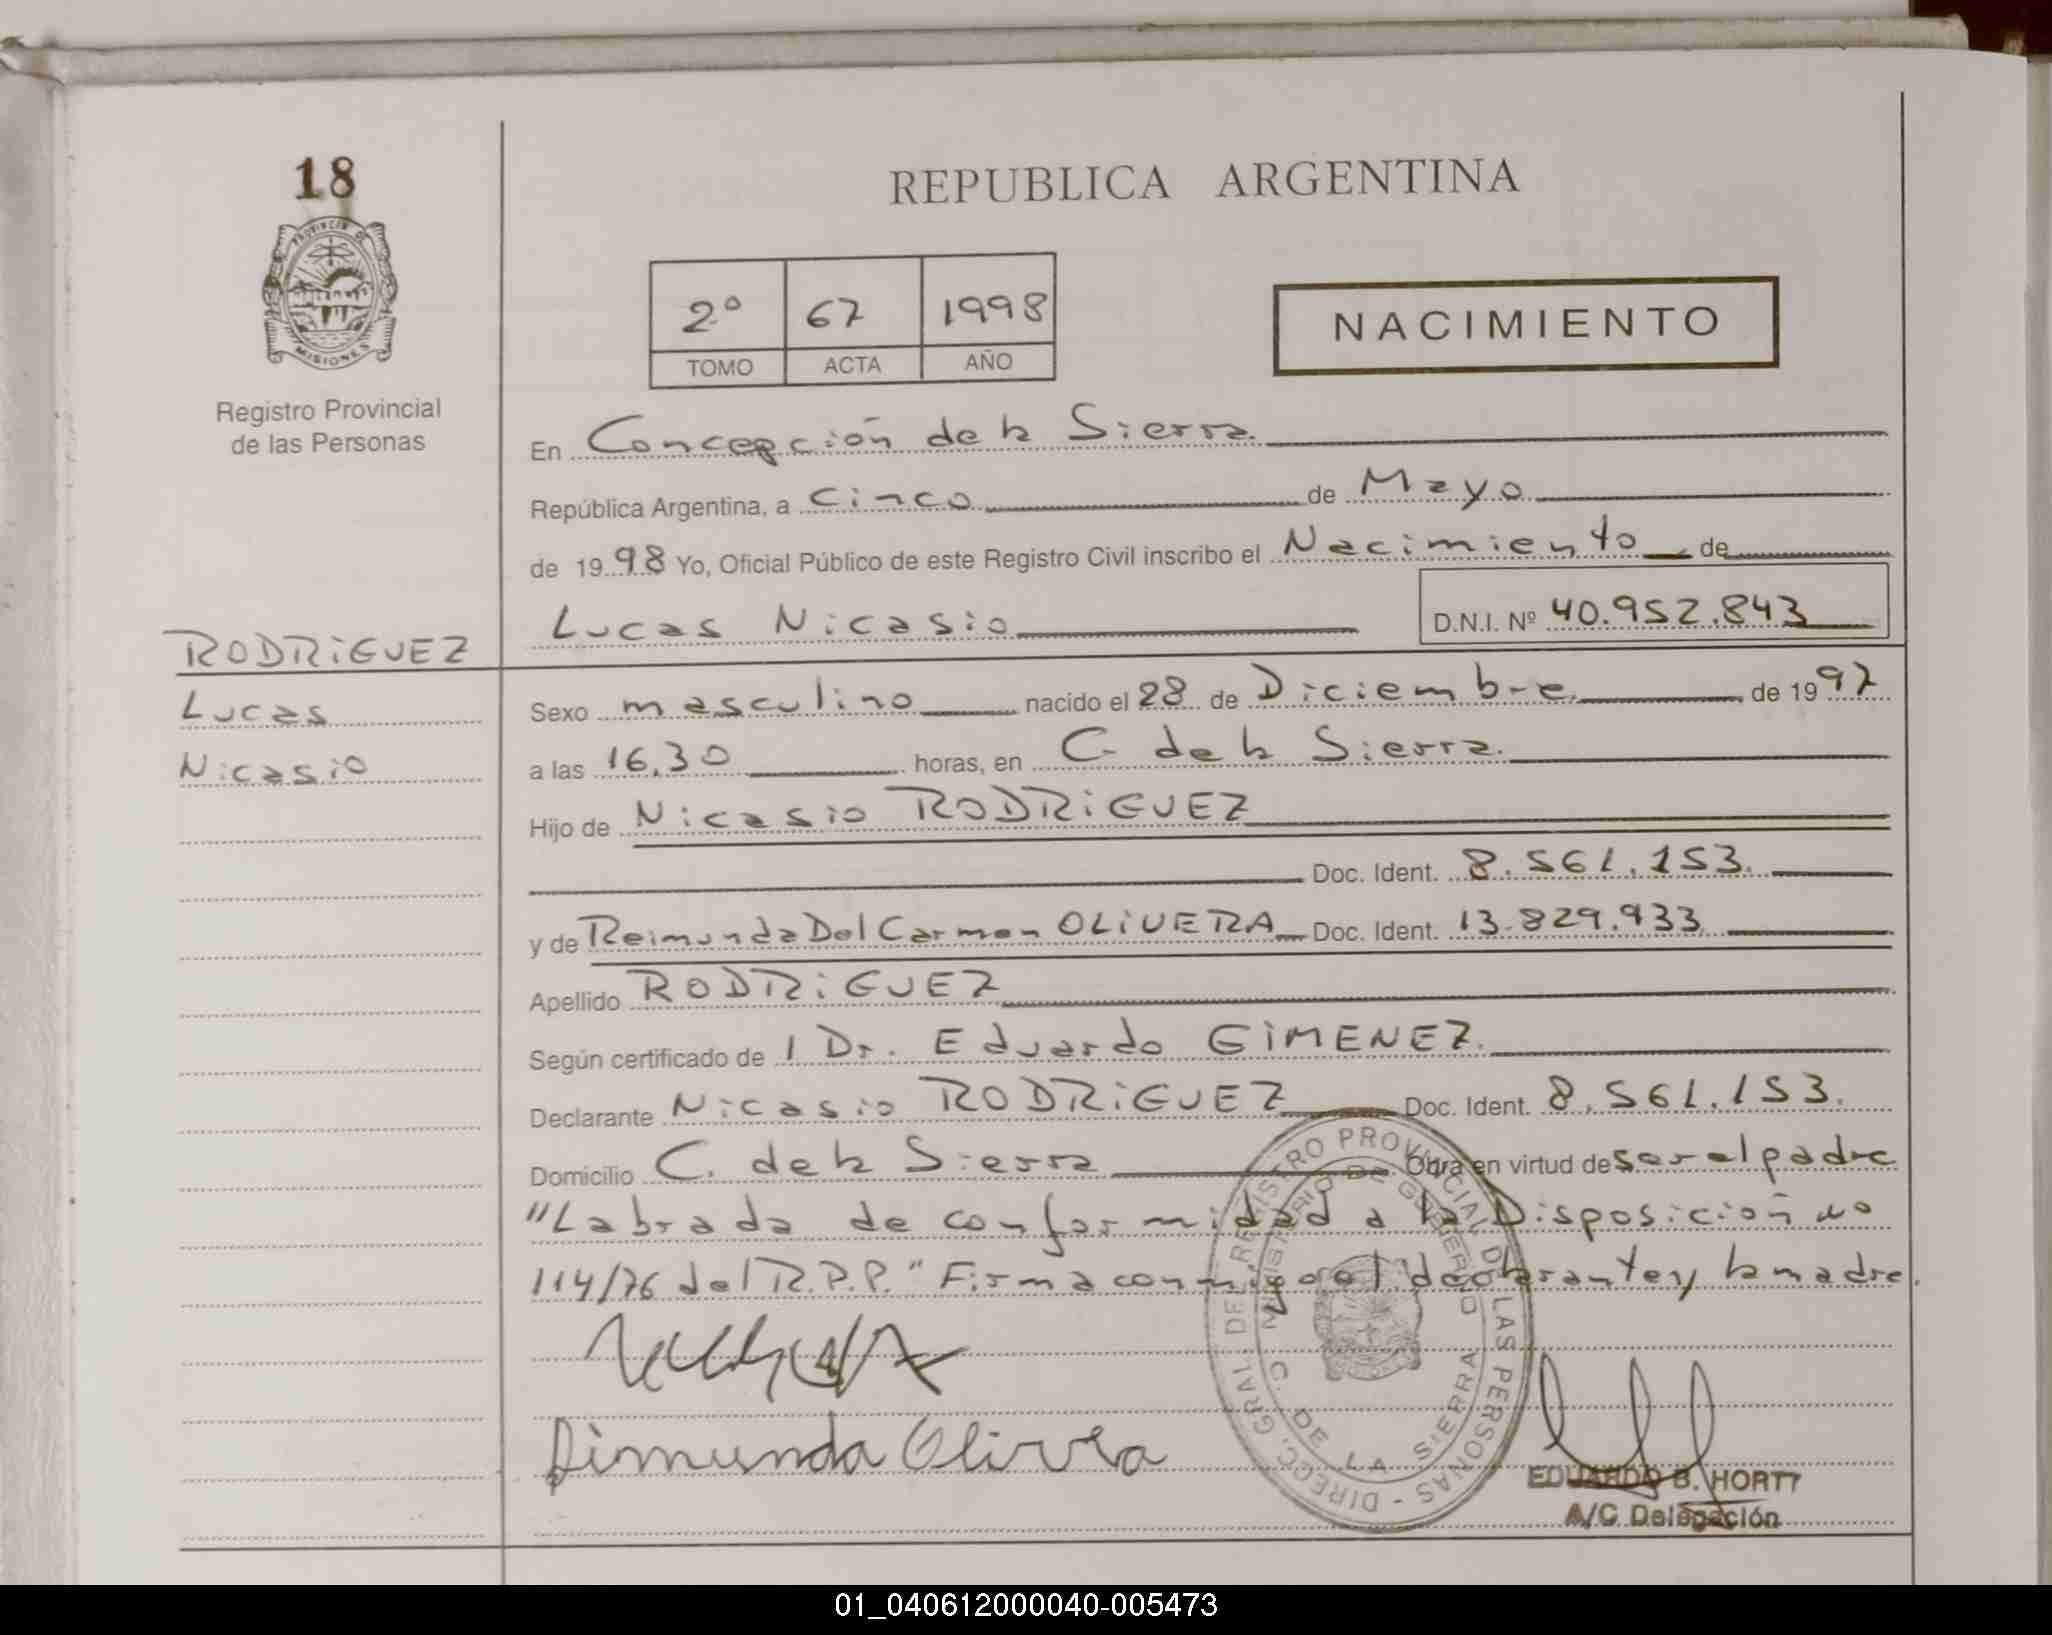 18
REPUBLICA ARGENTINA
PROVINCIA DE
MISIONES
Registro Provincial
de las Personas
2º 67 1998
TOMO ACTA AÑO
NACIMIENTO
En Concepción de la Sierra
República Argentina, a Cinco de Mayo
de 1998 Yo, Oficial Público de este Registro Civil inscribo el Nacimiento de
Lucas Nicasio D.N.I. Nº 40.952.843
RODRiGUEZ
Lucas
Nicasio
Sexo masculino nacido el 28 de Diciembre de 1997
a las 16,30 horas, en C. de la Sierra.
Hijo de Nicasio RODRiGUEZ
Doc. Ident. 8.561.153.
y de Reimunda Del Carmen OLiVERA Doc. Ident. 13.829.933
Apellido RODRiGUEZ
Según certificado de 1 Dr. Eduardo GiMENEZ.
Declarante Nicasio RODRiGUEZ Doc. Ident. 8.561.153.
Domicilio C. de la Sierra Obra en virtud de ser el padre
"Labrada de conformidad a la Disposición No
114/76 del R.P.P." Firma conmigo el declarante y la madre.
Dimunda Olivera
DIRECC. GRAL. DEL REGISTRO PROVINCIAL DE LAS PERSONAS -
MINISTERIO DE GOBIERNO
C. DE LA SIERRA
EDUARDO B. HORTT
A/C Delegación
01_040612000040-005473